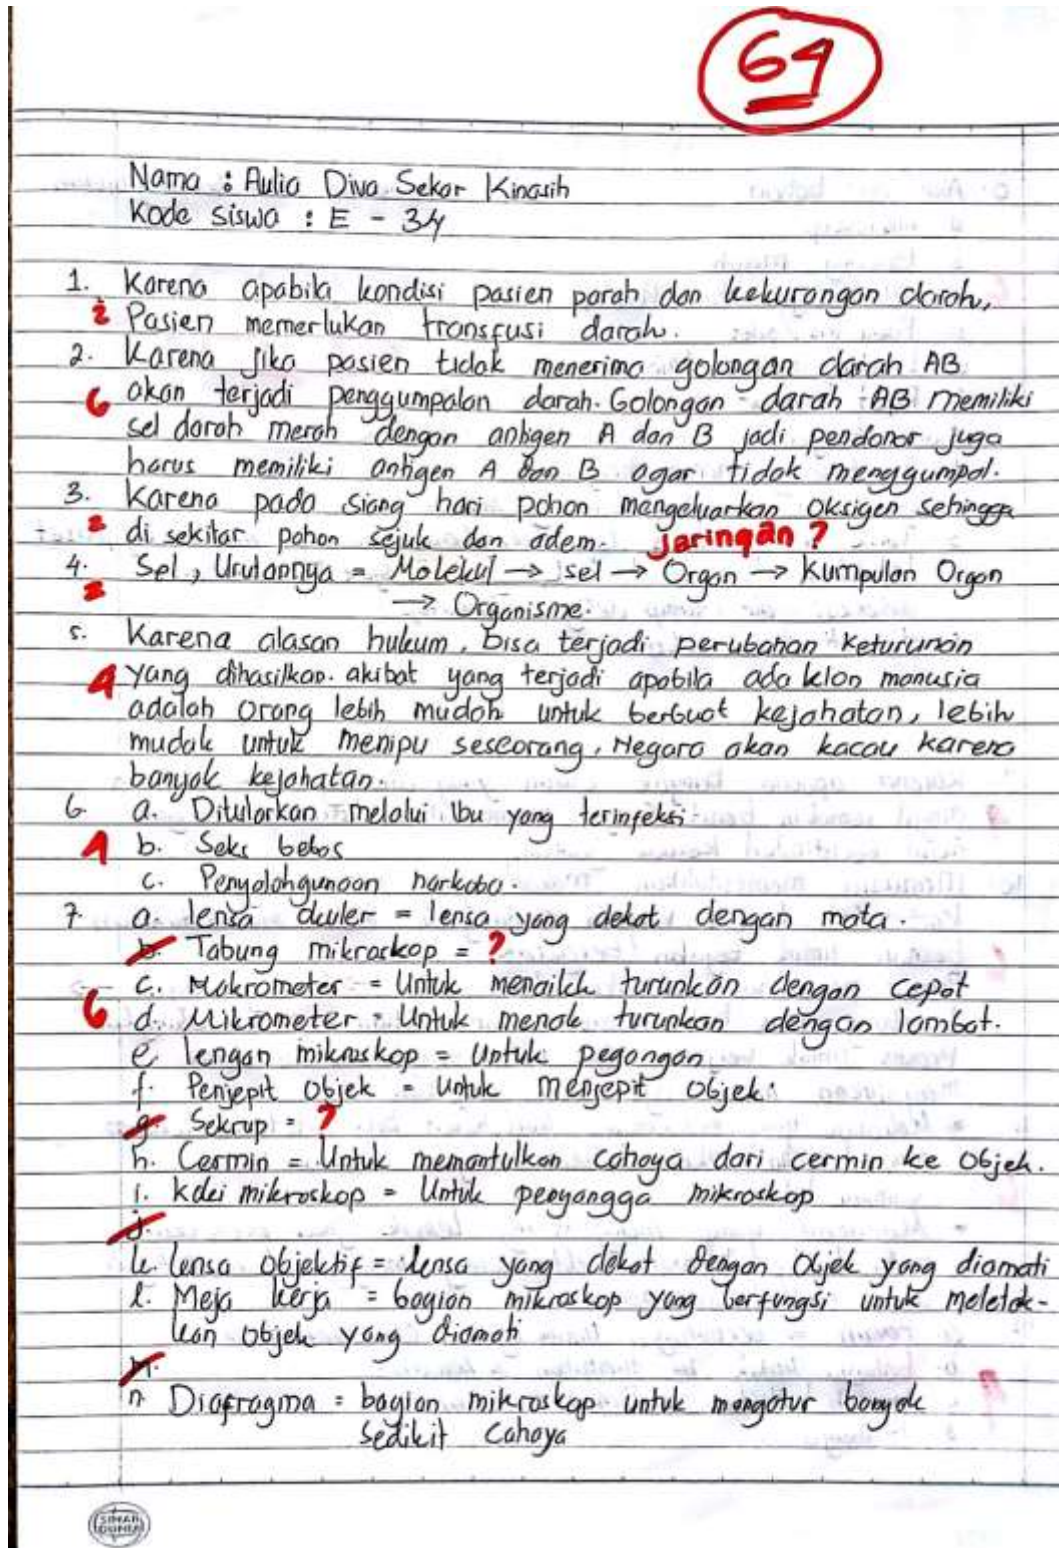 64
Nama : Aulia Diva Sekar Kinasih
Kode siswa : E - 34
1. Karena apabila kondisi pasien parah dan kekurangan darah,
2 Pasien memerlukan transfusi darah.
2. Karena jika pasien tidak menerima golongan darah AB
6 akan terjadi penggumpalan darah. Golongan darah AB memiliki
sel darah merah dengan antigen A dan B jadi pendonor juga
harus memiliki antigen A dan B agar tidak menggumpal.
3. Karena pada siang hari pohon mengeluarkan oksigen sehingga
2 di sekitar pohon sejuk dan adem. jaringan ?
4. Sel, Urutannya = Molekul → sel → Organ → Kumpulan Organ
2 → Organisme.
5. Karena alasan hukum, bisa terjadi perubahan keturunan
4 yang dihasilkan. akibat yang terjadi apabila ada klon manusia
adalah orang lebih mudah untuk berbuat kejahatan, lebih
mudah untuk menipu seseorang, Negara akan kacau karena
banyak kejahatan.
6. a. Ditularkan melalui Ibu yang terinfeksi
4 b. Seks bebas
c. Penyalahgunaan narkoba.
7. a. lensa okuler = lensa yang dekat dengan mata.
b. Tabung mikroskop = ?
c. Makrometer = Untuk menaik turunkan dengan cepat
6 d. Mikrometer = Untuk menaik turunkan dengan lambat.
e. lengan mikroskop = Untuk pegangan
f. Penjepit objek = untuk menjepit objek.
g. Sekrup = ?
h. Cermin = Untuk memantulkan cahaya dari cermin ke objek.
i. kaki mikroskop = Untuk penyangga mikroskop
j.
k. lensa objektif = lensa yang dekat dengan objek yang diamati
l. Meja kerja = bagian mikroskop yang berfungsi untuk meletak-
kan objek yang diamati
m.
n. Diafragma = bagian mikroskop untuk mengatur banyak
sedikit cahaya
SINAR DUNIA